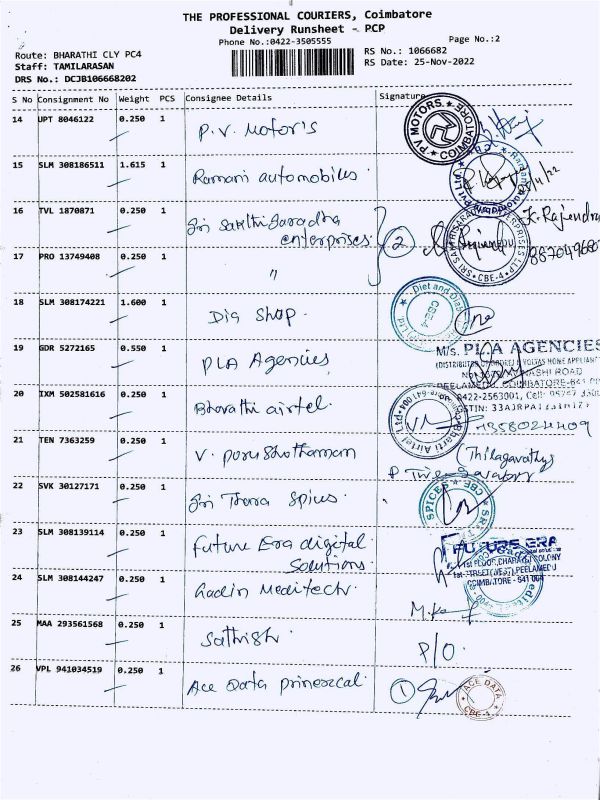 THE PROFESSIONAL COURIERS, Coimbatore
Delivery Runsheet - PCP
Phone No.:0422-3505555
Page No.:2
Route: BHARATHI CLY PC4
RS No.: 1066682
Staff: TAMILARASAN
RS Date: 25-Nov-2022
DRS No.: DCJB106668202
S No Consignment No Weight PCS Consignee Details Signature
14 UPT 8046122 0.250 1
P.V. Motor's
PV MOTORS COIMBATORE
15 SLM 308186511 1.615 1
Ramani automobiles
16 TVL 1870871 0.250 1
Sri Sakthi Saradha
enterprises
2
K. Rajendra
17 PRO 13749408 0.250 1
"
CBE-4
18 SLM 308174221 1.600 1
Dia Shop.
Diet and
CBE-4
19 GDR 5272165 0.550 1
PLA Agencies
M/s. PLA AGENCIES
20 IXM 502581616 0.250 1
Bharathi airtel.
0422-2563001, Cell:
Bharti Airtel Ltd
21 TEN 7363259 0.250 1
V. porushothaman
(Thilagavathy)
22 SVK 30127171 0.250 1
Sri Thara Spices
SPICES CBE
23 SLM 308139114 0.250 1
Future Era digital
Solutions
FUTURE ERA
1st FLOOR, COLONY
1st STREET (WEST), PEELAMEDU
COIMBATORE - 641 004
24 SLM 308144247 0.250 1
Meditech
25 MAA 293561568 0.250 1
Sathish
P/O
26 VPL 941034519 0.250 1
Ace Data
1
ACE DATA
CBE-4